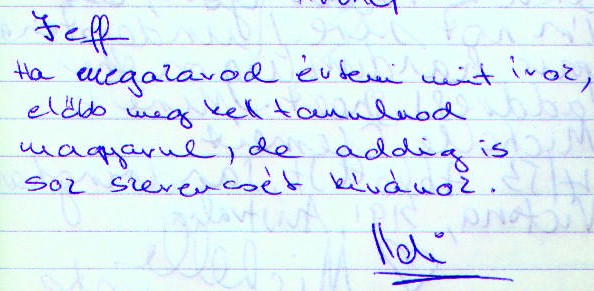 Jeff
Ha megazarod érteni mit íroz,
előbb meg kel tanulnod
magyarul, de addig is
soz szerencsét kívánoz.
Ildi